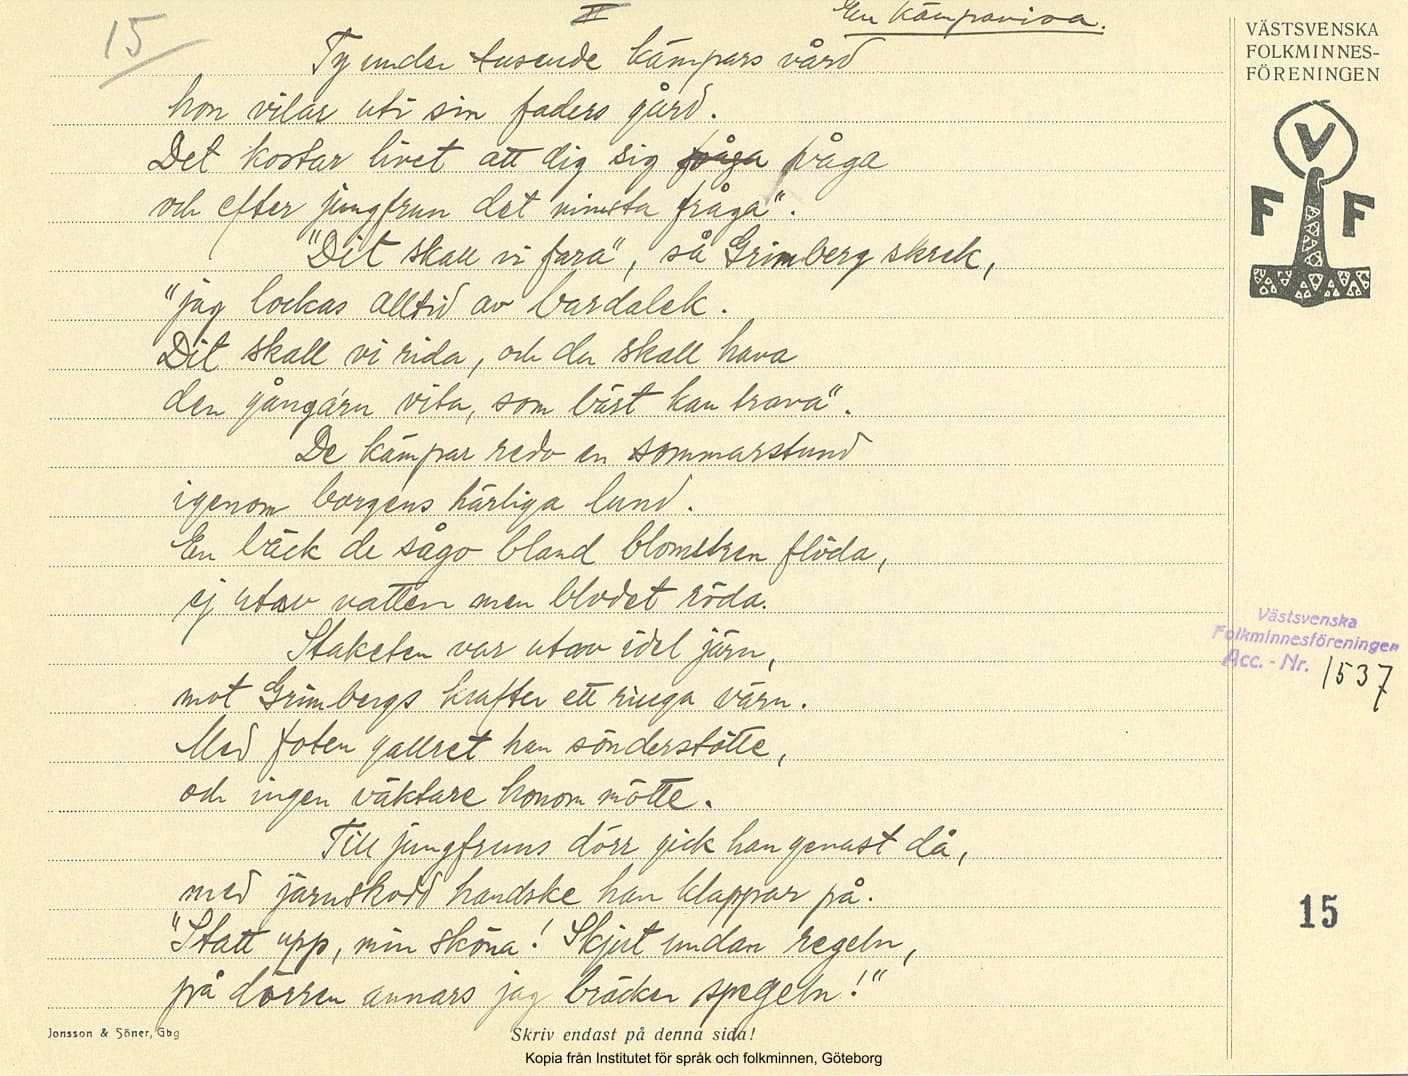 15
II
En kämpavisa.
Ty under tusende kämpars vård
hon vilar uti sin faders gård.
Det kostar livet att dig sig våga våga
och efter jungfrun det minsta fråga".
"Dit skall vi fara", så Grimberg skrek,
"jag lockas alltid av bardalek.
Dit skall vi rida, och du skall hava
den gångarn vita, som bäst kan trava".
De kämpar redo en sommarstund
igenom borgens härliga lund.
En bäck de sågo bland blomstren flöda,
ej utav vatten men blodet röda.
Staketen var utav idel järn,
mot Grimbergs krafter ett ringa värn.
Med foten gallret han sönderstötte,
och ingen väktare honom mötte.
Till jungfruns dörr gick han genast då,
med järnskodd handske han klappar på.
"Statt upp, min sköna! Skjut undan regeln,
på dörren annars jag bräcker spegeln!"
Jonsson & Söner, Gbg
Skriv endast på denna sida!
Kopia från Institutet för språk och folkminnen, Göteborg
VÄSTSVENSKA
FOLKMINNES-
FÖRENINGEN
V
F F
Västsvenska
Folkminnesföreningen
Acc. - Nr. 1537
15